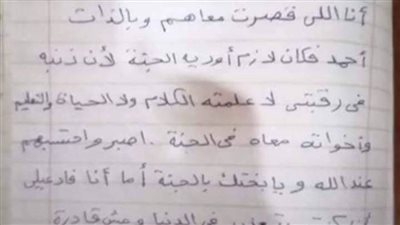 أنا اللي قصرت معاهم وبالذات
أحمد فكان لازم أوديه الجنة لأن ذنبه
في رقبتي لا علمته الكلام ولا الحياة والتعليم
وأخواته معاه في الجنة . اصبر واحتسبهم
عند الله ويا بختك بالجنة أما أنا فادعيلي
في الدنيا ومش قادرة